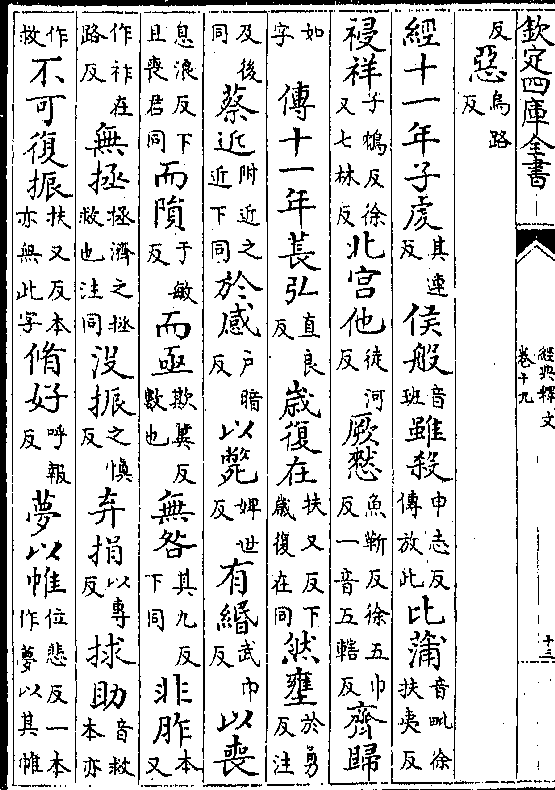 欽定四庫全書
經典釋文
卷十九
十三
反惡烏路反
經十一年子虔其連反侯般音班雖殺申志反傳放此比蒲音毗徐扶夷反
祲祥子鴆反徐又七林反北宮他徒河反厥憖魚靳反徐五巾反一音五轄反齊歸
如字傳十一年萇弘直良反歲復在扶又反下歲復在同然壅於勇反注
及後同蔡近附近之近下同於感戶暗反以斃婢世反有緡武巾反以喪
息浪反下且喪君同而隕于敏反而亟欺兾反數也無咎其九反下同非胙本又
作祚在路反無拯拯濟之拯救也注同沒振之慎反弃捐以專反捄助音救本亦
作救不可復振扶又反本亦無此字脩好呼報反夢以帷位悲反一本作夢以其帷